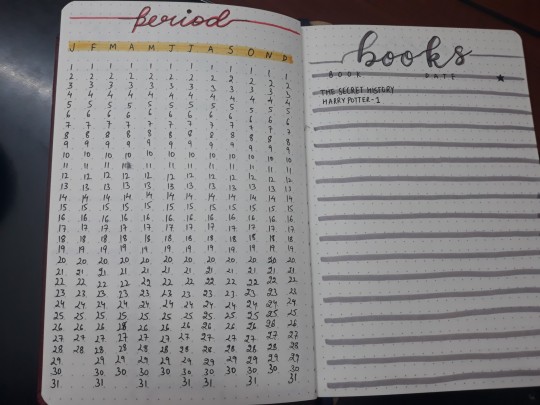 Period
J F M A M J J A S O N D
1 1 1 1 1 1 1 1 1 1 1 1
2 2 2 2 2 2 2 2 2 2 2 2
3 3 3 3 3 3 3 3 3 3 3 3
4 4 4 4 4 4 4 4 4 4 4 4
5 5 5 5 5 5 5 5 5 5 5 5
6 6 6 6 6 6 6 6 6 6 6 6
7 7 7 7 7 7 7 7 7 7 7 7
8 8 8 8 8 8 8 8 8 8 8 8
9 9 9 9 9 9 9 9 9 9 9 9
10 10 10 10 10 10 10 10 10 10 10 10
11 11 11 11 11 11 11 11 11 11 11
12 12 12 12 12 12 12 12 12 12 12 12
13 13 13 13 13 13 13 13 13 13 13 13
14 14 14 14 14 14 14 14 14 14 14 14
15 15 15 15 15 15 15 15 15 15 15 15
16 16 16 16 16 16 16 16 16 16 16 16
17 17 17 17 17 17 17 17 17 17 17 17
18 18 18 18 18 18 18 18 18 18 18 18
19 19 19 19 19 19 19 19 19 19 19 19
20 20 20 20 20 20 20 20 20 20 20 20
21 21 21 21 21 21 21 21 21 21 21 21
22 22 22 22 22 22 22 22 22 22 22 22
23 23 23 23 23 23 23 23 23 23 23 23
24 24 24 24 24 24 24 24 24 24 24 24
25 25 25 25 25 25 25 25 25 25 25 25
26 26 26 26 26 26 26 26 26 26 26
27 27 27 27 27 27 27 27 27 27 27 27
28 28 28 28 28 28 28 28 28 28 28 28
29 29 29 29 29 29 29 29 29 29 29
30 30 30 30 30 30 30 30 30 30 30
31 31 31 31 31 31 31
books
BOOK DATE
THE SECRET HISTORY
HARRY POTTER-1